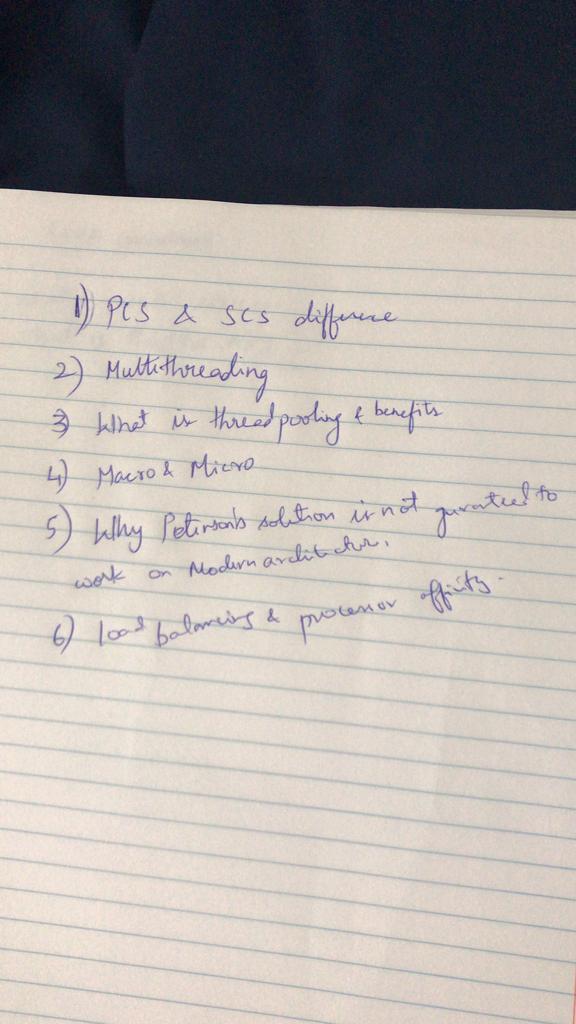 1) PCS & SCS difference
2) Multithreading
3) What is threadpooling & benefits
4) Macro & Micro
5) Why Peterson's solution is not guranteed to
work on Modern architecture.
6) load balancing & processor affinity.